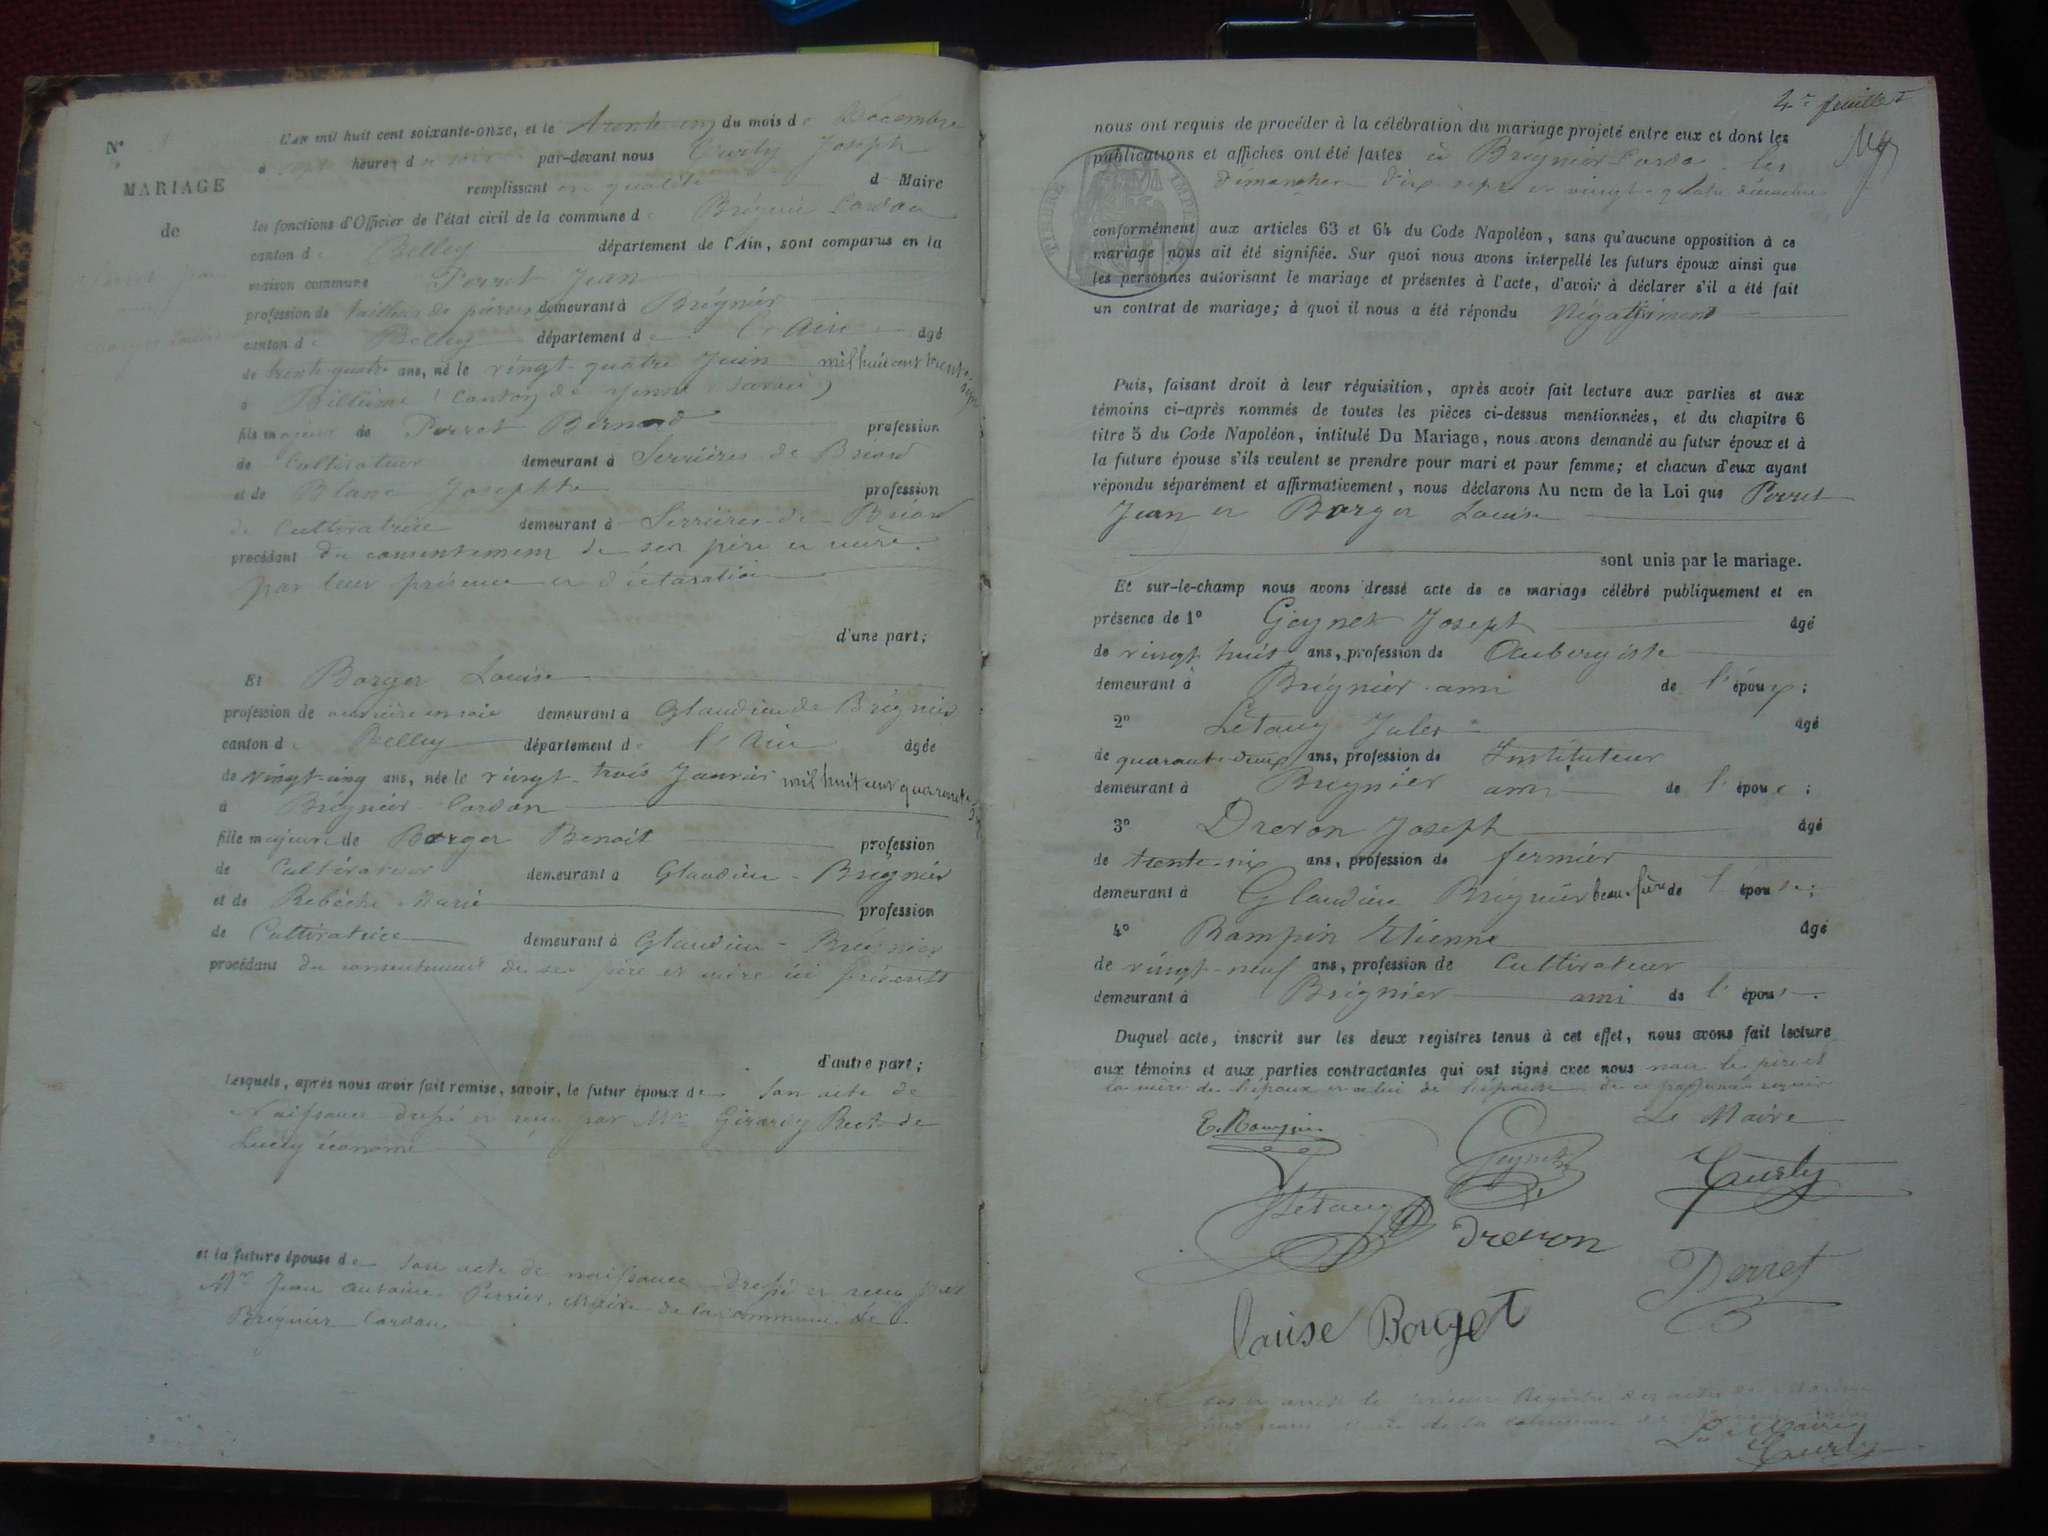 N°
MARIAGE
de
L'an mil huit cent soixante-onze, et le trente un du mois de Décembre
à sept heures du soir par-devant nous Curty Joseph
remplissant en qualité de Maire
les fonctions d'Officier de l'état civil de la commune de Brégnier Cordon
canton de Belley département de l'Ain, sont comparus en la
maison commune Perret Jean
profession de tailleur de pierres demeurant à Brégnier
canton de Belley département de l'Ain âgé
de trente-quatre ans, né le vingt-quatre Juin mil huit cent trente-sept
à Billième (Canton de Yenne Savoie)
fils majeur de Perret Bernard profession
de Cultivateur demeurant à Serrières de Briord
et de Blanc Josephte profession
de Cultivatrice demeurant à Serrières-de-Briord
procédant du consentement de ses père et mère
par leur présence et déclaration
d'une part;
Et Borget Louise
profession de ouvrière en soie demeurant à Glandieu de Brégnier
canton de Belley département de l'Ain âgée
de vingt-cinq ans, née le vingt-trois Janvier mil huit cent quarante
à Brégnier-Cordon
fille majeure de Borget Benoit profession
de Cultivateur demeurant à Glandieu-Brégnier
et de Rebèche Marie profession
de Cultivatrice demeurant à Glandieu-Brégnier
procédant du consentement de ses père et mère ici présents
d'autre part;
Lesquels, après nous avoir fait remise, savoir, le futur époux de Son acte de
Naissance dressé et reçu par Mr Girardy Rect de
Lucey économe
et la future épouse de Son acte de naissance dressé et reçu par
Mr Jean Antoine Perrier, Maire de la commune de
Brégnier Cordon
4e feuillet
nous ont requis de procéder à la célébration du mariage projeté entre eux et dont les
publications et affiches ont été faites à Brégnier Cordon les
dimanches dix sept et vingt-quatre décembre
TIMBRE IMPÉRIAL
conformément aux articles 63 et 64 du Code Napoléon, sans qu'aucune opposition à ce
mariage nous ait été signifiée. Sur quoi nous avons interpellé les futurs époux ainsi que
les personnes autorisant le mariage et présentes à l'acte, d'avoir à déclarer s'il a été fait
un contrat de mariage; à quoi il nous a été répondu Négativement
Puis, faisant droit à leur réquisition, après avoir fait lecture aux parties et aux
témoins ci-après nommés de toutes les pièces ci-dessus mentionnées, et du chapitre 6
titre 5 du Code Napoléon, intitulé Du Mariage, nous avons demandé au futur époux et à
la future épouse s'ils veulent se prendre pour mari et pour femme; et chacun d'eux ayant
répondu séparément et affirmativement, nous déclarons Au nom de la Loi que Perret
Jean et Borget Louise
sont unis par le mariage.
Et sur-le-champ nous avons dressé acte de ce mariage célébré publiquement et en
présence de 1° Goynet Joseph âgé
de vingt huit ans, profession de Aubergiste
demeurant à Brégnier ami de l'époux;
2° Létang Jules âgé
de quarante-deux ans, profession de Instituteur
demeurant à Brégnier ami de l'époux;
3° Drevon Joseph âgé
de trente-six ans, profession de fermier
demeurant à Glandieu Brégnier beau-frère de l'épouse;
4° Rampin Etienne âgé
de vingt-neuf ans, profession de Cultivateur
demeurant à Brégnier ami de l'épouse.
Duquel acte, inscrit sur les deux registres tenus à cet effet, nous avons fait lecture
aux témoins et aux parties contractantes qui ont signé avec nous non le père et
la mère de l'époux et celui de l'épouse de ce
Le Maire
E. Rampin Goynet Curty
Létang Drevon
Perret
Louise Borget
le présent Registre des actes de Mariage
par nous Maire de la commune de
Le Maire
Curty